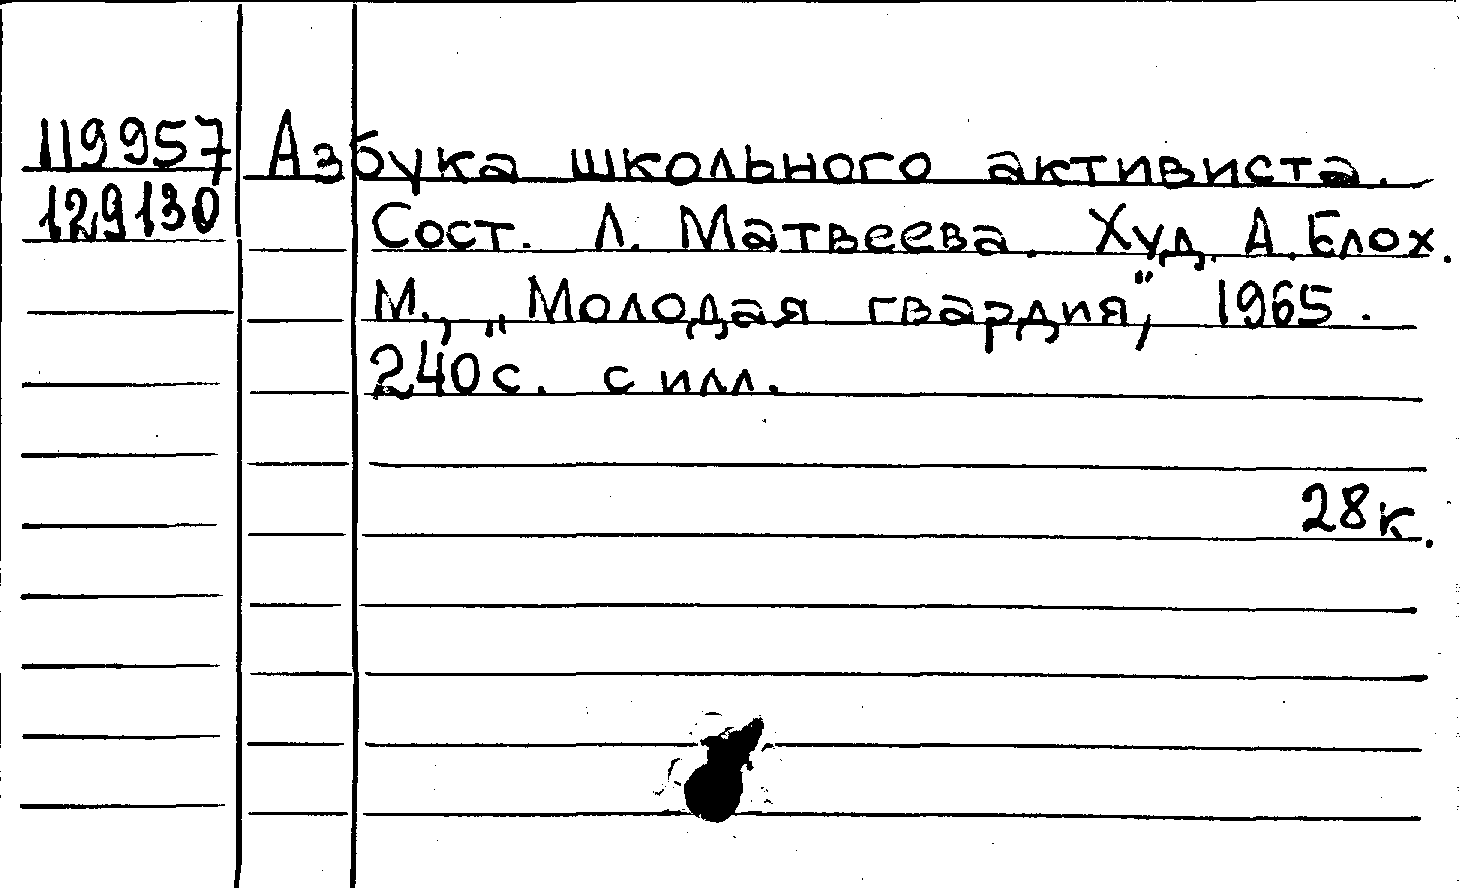 119957 Азбука школьного активиста.
129130 Сост. Л. Матвеева. Худ. А. Блох.
М., „Молодая гвардия“, 1965.
240с. с илл.
28к.